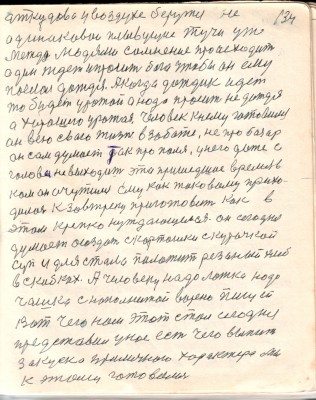 откудова у воздухе берутся не 134
одинаковои пливущие тучи уже
между людями сомнение происходит
один ждет и просит бога чтобы он ему
послал дождя. А когда дождик идет
то будет урожай а надо просить не дождя
а хорошего урожая. Человек к нему готовится
он всю свою жизнь в заботе, не про базар
он сам думает так про поля, у него даже с
головы не выходит эта пришедшее время в
ком он очутился ему как таковому прихо-
дилось к завтреку приготовить как в
этом крепко нуждающемся. он сегодня
думает создать с картошки с курочкой
суп и для стола положить резаный хлеб
в скибках. А человеку надо ложка надо
чашка с наполнитой варено пищей
Вот чего нам этот стол сегодня
представил у нас есть чего выпить
Закуска приличного характера мы
к этому готовимся